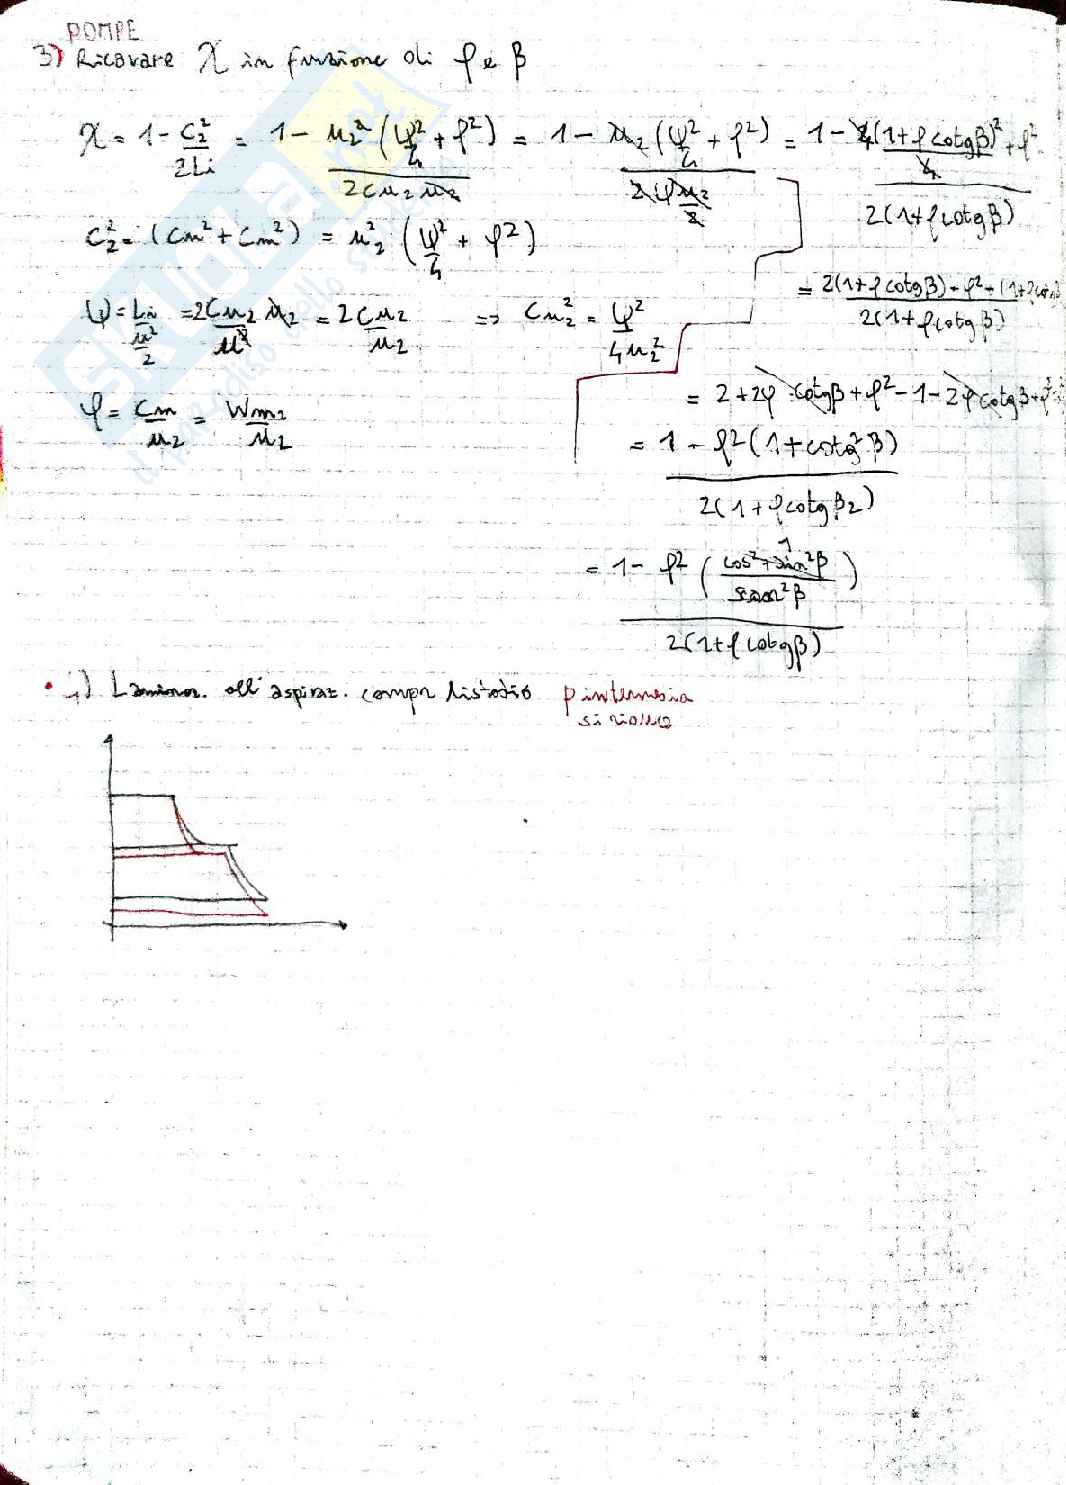 POMPE
3) Ricavare χ in funzione di φ e β
χ = 1 - C₂²/2Li = 1 - u₂²(ψ²/4 + φ²)/2Cu₂u₂ = 1 - u₂(ψ²/4 + φ²)/2ψu₂/2 = 1 - 4(1+φcotgβ)²/4 + φ²/2(1+φcotgβ)
C₂² = (Cu² + Cm²) = u₂²(ψ²/4 + φ²)
= 2(1+φcotgβ) - φ² - (1+φcotg)/2(1+φcotgβ)
ψ = Li/u²/2 = 2Cu₂u₂/u² = 2Cu₂/u₂ => Cu₂² = ψ²/4u₂²
= 2+2φ cotgβ + φ² - 1 - 2φcotgβ + φ²
φ = Cm/u₂ = Wm₂/u₂
= 1 - φ²(1+cotg²β)/2(1+φcotgβ₂)
= 1 - φ²(cos²+sin²β/sen²β)/2(1+φcotgβ)
1
• 4) Laminaz. all'aspiraz. compr bistadio p intermedia
si riduce
SKUOLA.net
il paradiso dello studente